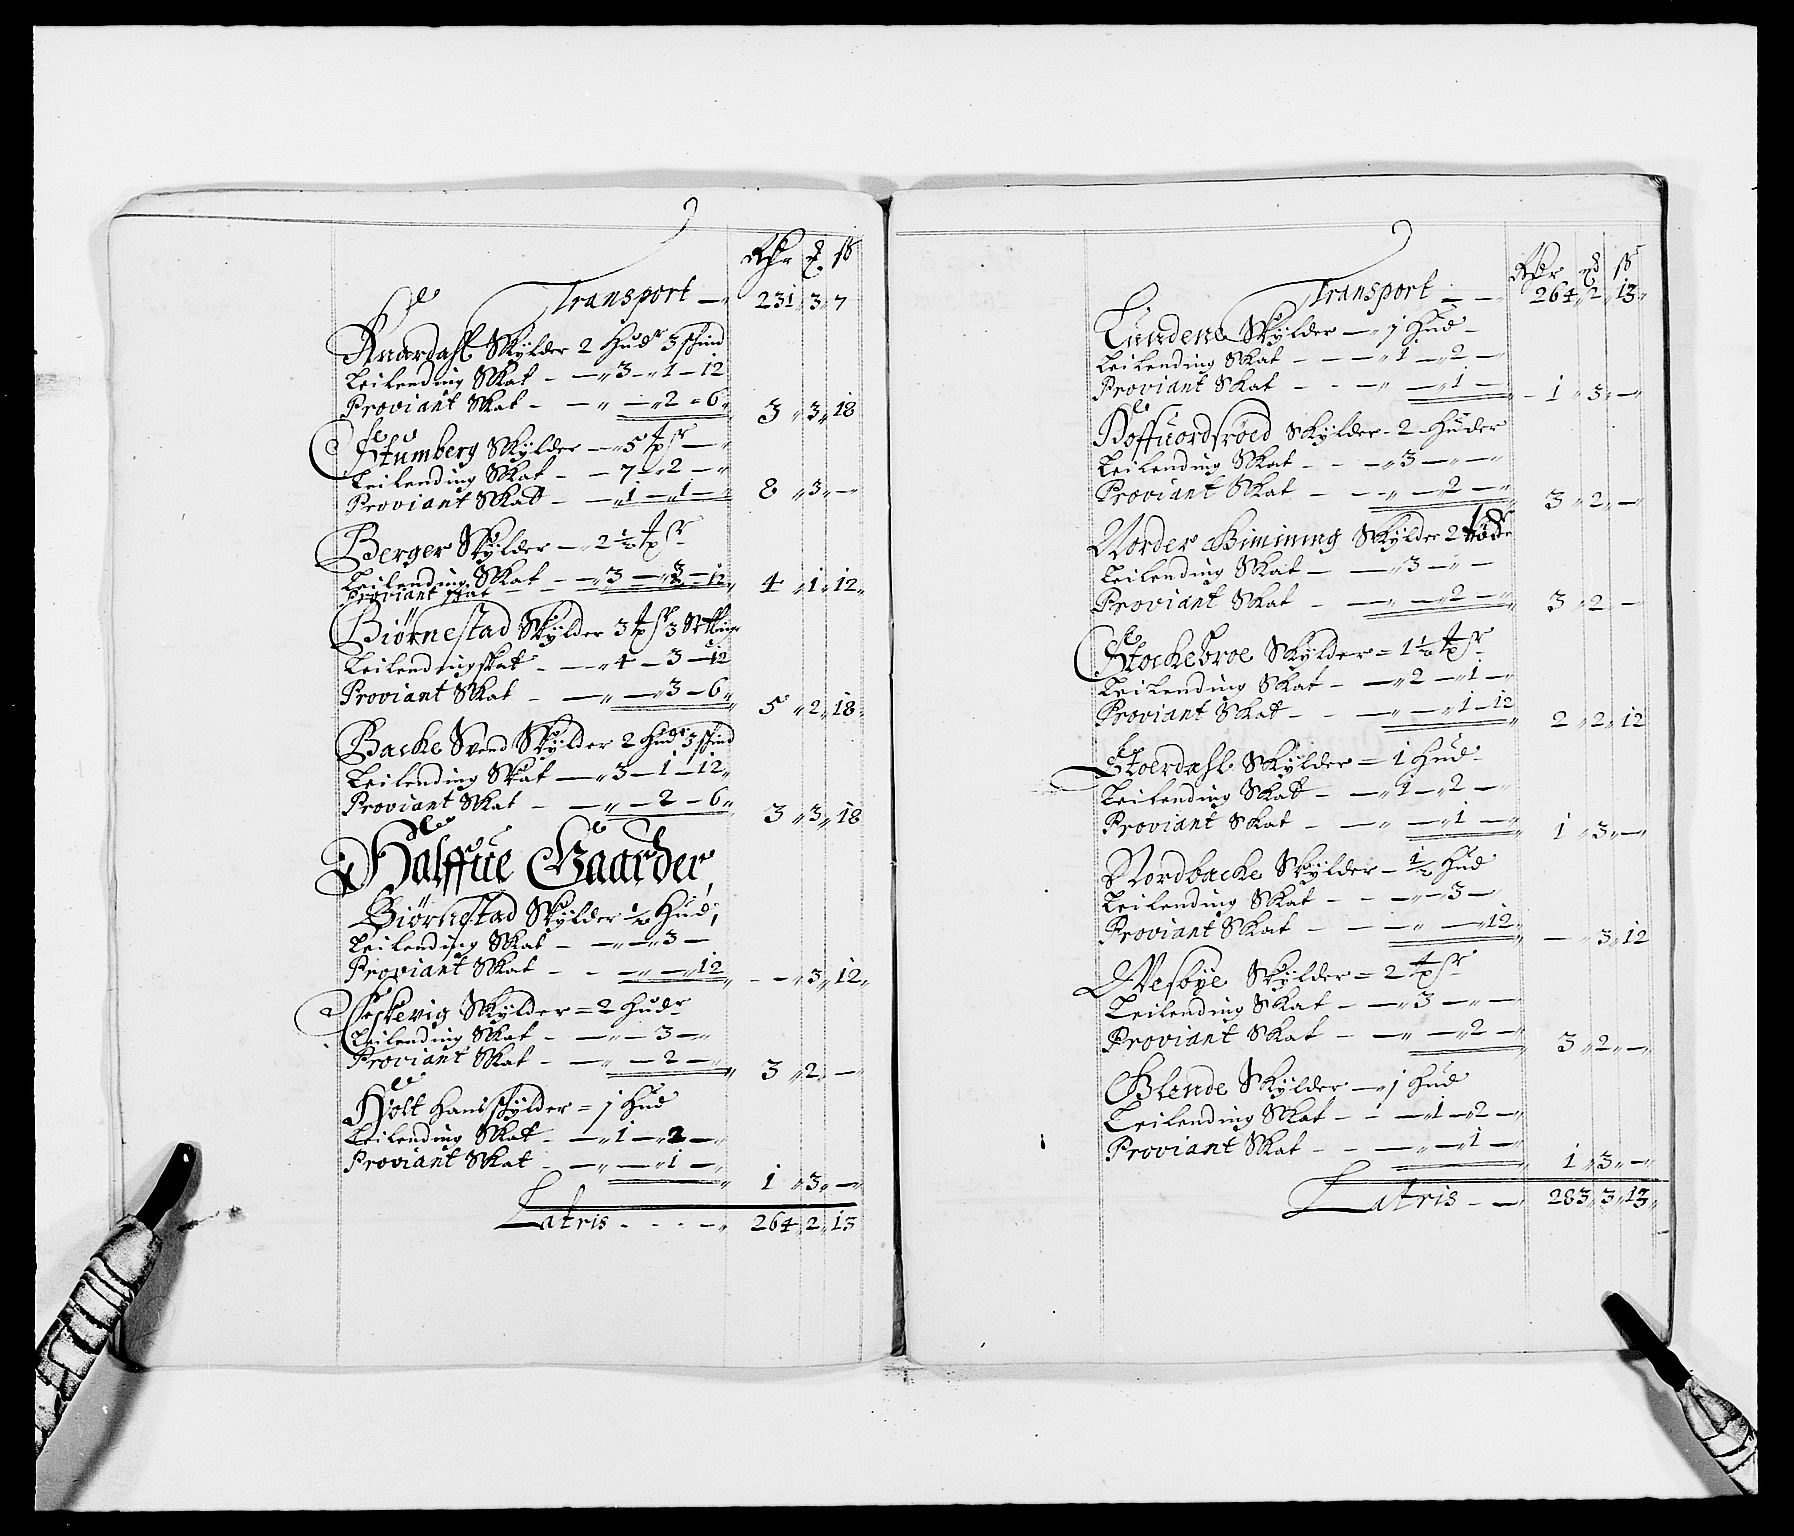 Rdr ₰ ß
Transport — 231 3 7
Knardahl Skylder 2 Hudr 3 skind
Leilending Skat - — 3 — 1 — 12
Proviant Skat - — " — 2 - 6
3 " 3 " 18
Stumberg Skylder — 5 tpsr —
Leilending Skat - — 7 — 2 —
Proviant Skat - — 1 — 1 — 8 " 3 " —
Berger Skylder — 2 ½ tpsr
Leilending Skat - — 3 — 3 — 12 4 " 1 " 12
Proviant skat
Biørnestad Skylder 3 tpsr 3
Leilendingskat - — 4 — 3 — 12
Proviant Skat - — " — 3 — 6
5 " 2 " 18
Backe Svend Skylder 2 Hudr 3 skind
Leilending Skat — 3 — 1 — 12
Proviant Skat - — " — 2 — 6
3 " 3 " 18
Halffue Gaarder,
Biørnestad Skylder ½ Hud,
Leilending Skat - — " — 3 —
Proviant Skat - - — " — 12 - — " 3 " 12
Eskevig Skylder = 2 Hudr
Leilending Skat - — " — 3 —
Proviant Skat - — " — 2 — 3 " 2 " —
Holt Hans skylder = j Hud
Leilending Skat - — 1 — 2 —
Proviant Skat - — " — 1 —
1 " 3 " —
Latris - - - — 264 " 2 " 13
Rdr ₰ ß
Transport — — 264 " 2 " 13
Lundene Skylder — j Hud -
Leilending Skat - - — 1 — 2 —
Proviant Skat - - — " — 1 — - 1 " 3 " —
Hoffuordsrøed Skylder - 2 - Huder
Leilending Skat - - — 3 — " —
Proviant Skat - - — " — 2 — 3 " 2 " —
Norder Biminung Skylder 2
Leilending Skat - — 3 — " —
Proviant Skat - — " — 2 — 3 " 2 " —
Stockebroe Skylder = 1 ½ tpsr
Leilending Skat - — 2 — 1 —
Proviant Skat - - — " — 1 — 12 2 " 2 " 12
Stoerdahl Skylder = 1 Hud -
Leilending Skat - — 1 — 2 —
Proviant Skat - — " — 1 — 1 " 3 " —
Nordbacke Skylder — ½ Hud
Leilending Skat - - — " — 3 —
Proviant Skat - - — " — 12 — " 3 " 12
Wesbye Skylder = 2 tpsr
Leilending Skat - — 3 — " —
Proviant Skat - — " — 2 — 3 " 2 " —
Blende Skylder — j Hud
Leilending Skat - - — 1 — 2 —
Proviant Skat - - — " — 1 —
1 " 3 " —
Latris - — 283 " 3 " 13